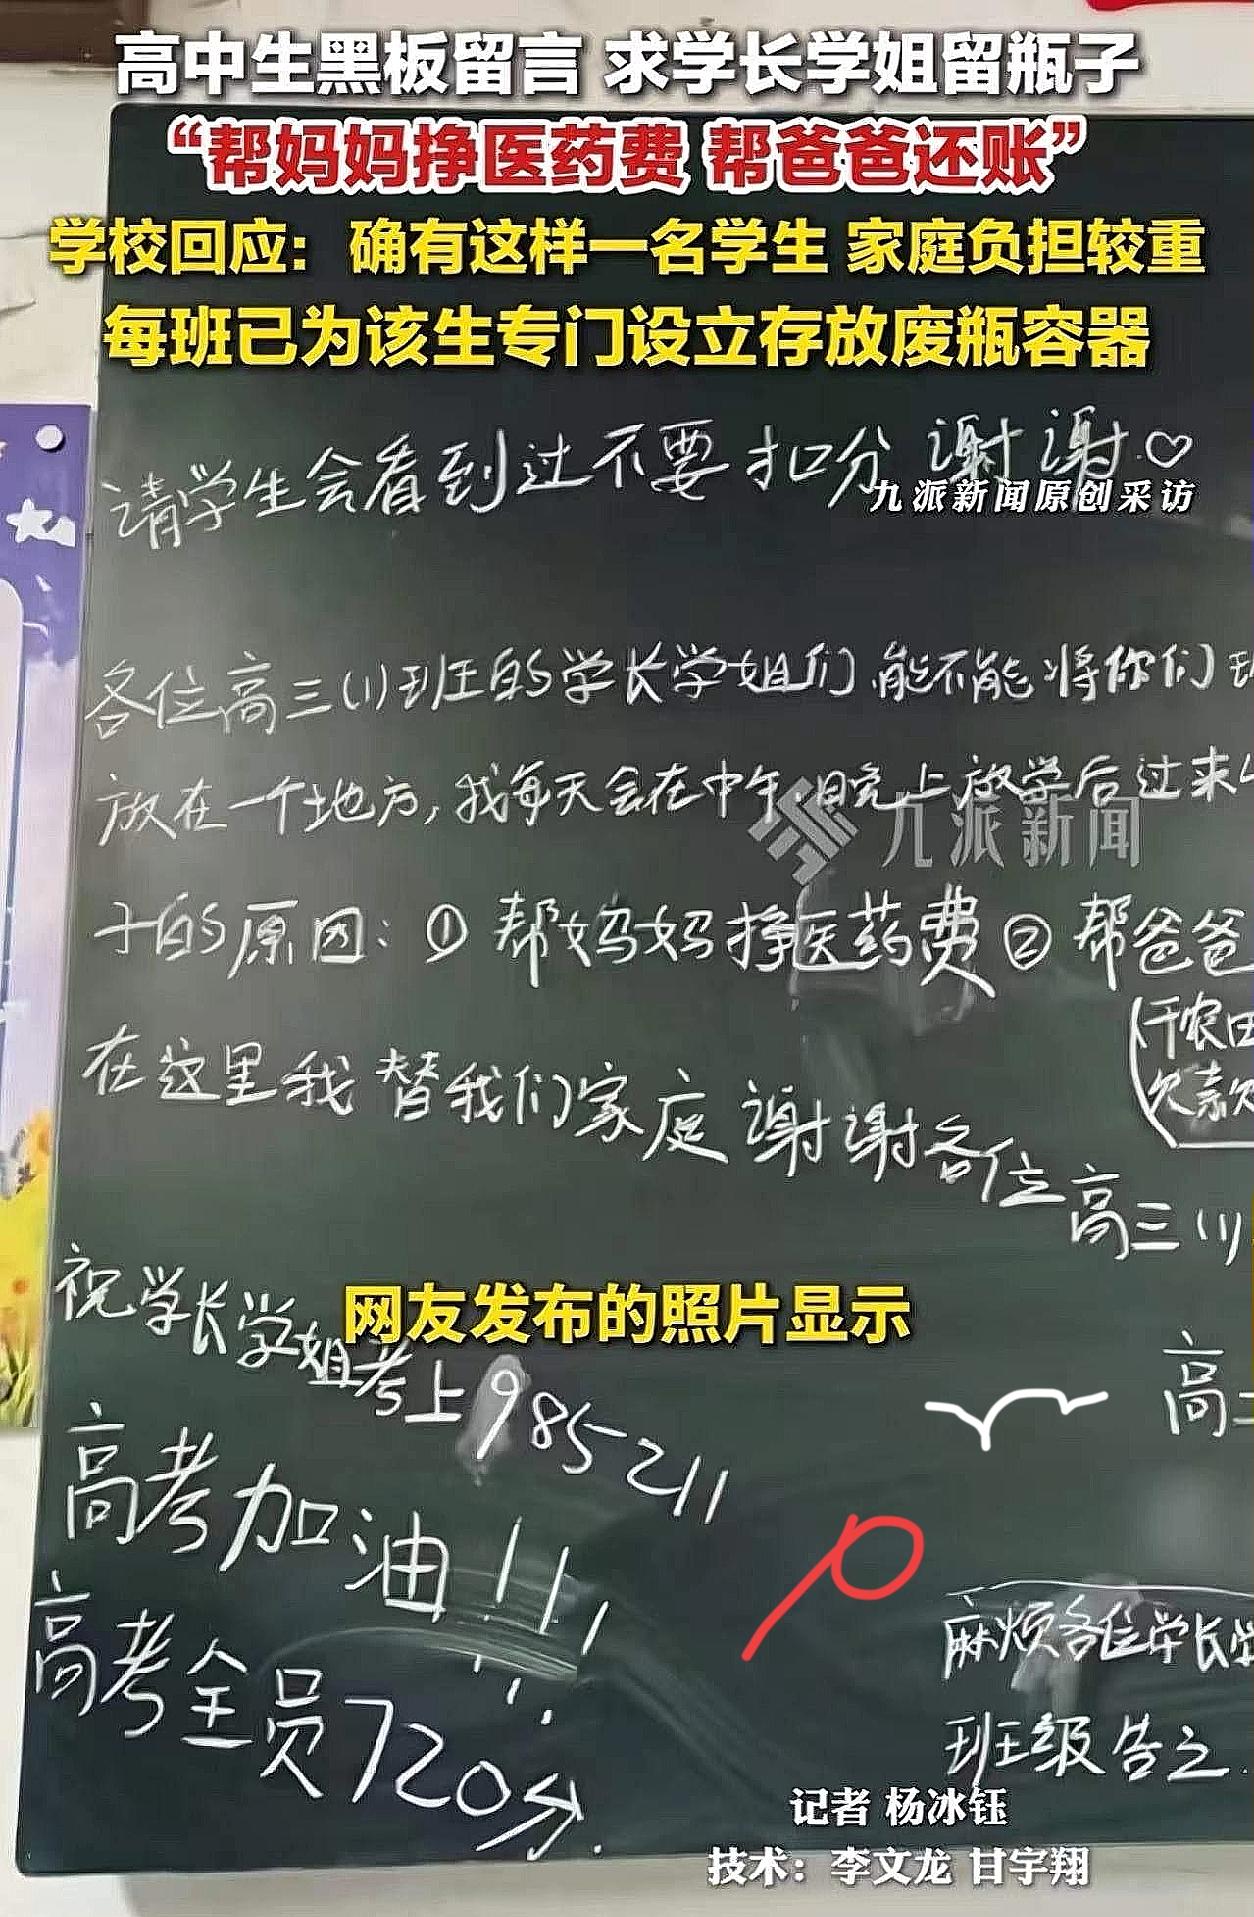 高中生黑板留言 求学长学姐留瓶子
“帮妈妈挣医药费 帮爸爸还账”
学校回应：确有这样一名学生 家庭负担较重
每班已为该生专门设立存放废瓶容器
请学生会看到过不要扣分 谢谢♡
九派新闻原创采访
各位高三(1)班的学长学姐们 能不能将你们
放在一个地方，我每天会在中午 晚上放学后过来
九派新闻
子的原因：① 帮妈妈挣医药费 ② 帮爸爸
(干农田
欠款
在这里我替我们家庭 谢谢各位高三(1)
祝学长学姐考上985 211
网友发布的照片显示
高
高考加油!!!
高考全员720分.
麻烦各位学长
班级告之
记者 杨冰钰
技术：李文龙 甘宇翔